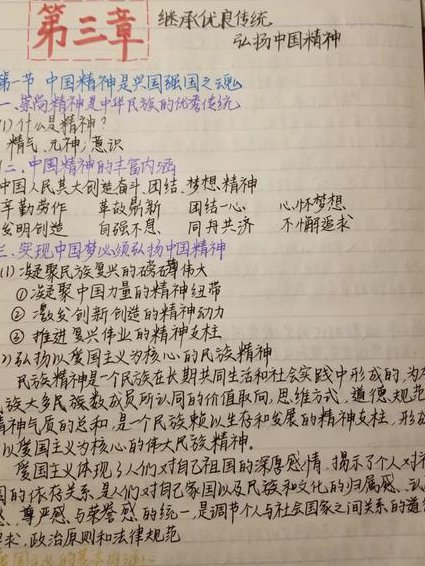 第三章 继承优良传统
弘扬中国精神
第一节 中国精神是兴国强国之魂
一、崇尚精神是中华民族的优秀传统
(1) 什么是精神?
精气、元神,意识
二、中国精神的丰富内涵
中国人民具大创造奋斗、团结、梦想精神
辛勤劳作 革故鼎新 团结一心 心怀梦想
发明创造 自强不息 同舟共济 不懈追求
三、实现中国梦必须弘扬中国精神
(1) 凝聚民族复兴的磅礴伟大
①凝聚中国力量的精神纽带
② 激发创新创造的精神动力
③ 推进复兴伟业的精神支柱
2) 弘扬以爱国主义为核心的民族精神
民族精神是一个民族在长期共同生活和社会实践中形成的,为本
族大多民族数成员所认同的价值取向,思维方式,道德规范
精神气质的总和,是一个民族赖以生存和发展的精神支柱,形成
以爱国主义为核心的伟大民族精神.
爱国主义体现了人们对自己祖国的深厚感情,揭示了个人对祖
国的依存关系,是人们对自己家国以及民族和文化的归属感、认
感、尊严感与荣誉感的统一,是调节个人与社会国家之间关系的道德
要求、政治原则和法律规范